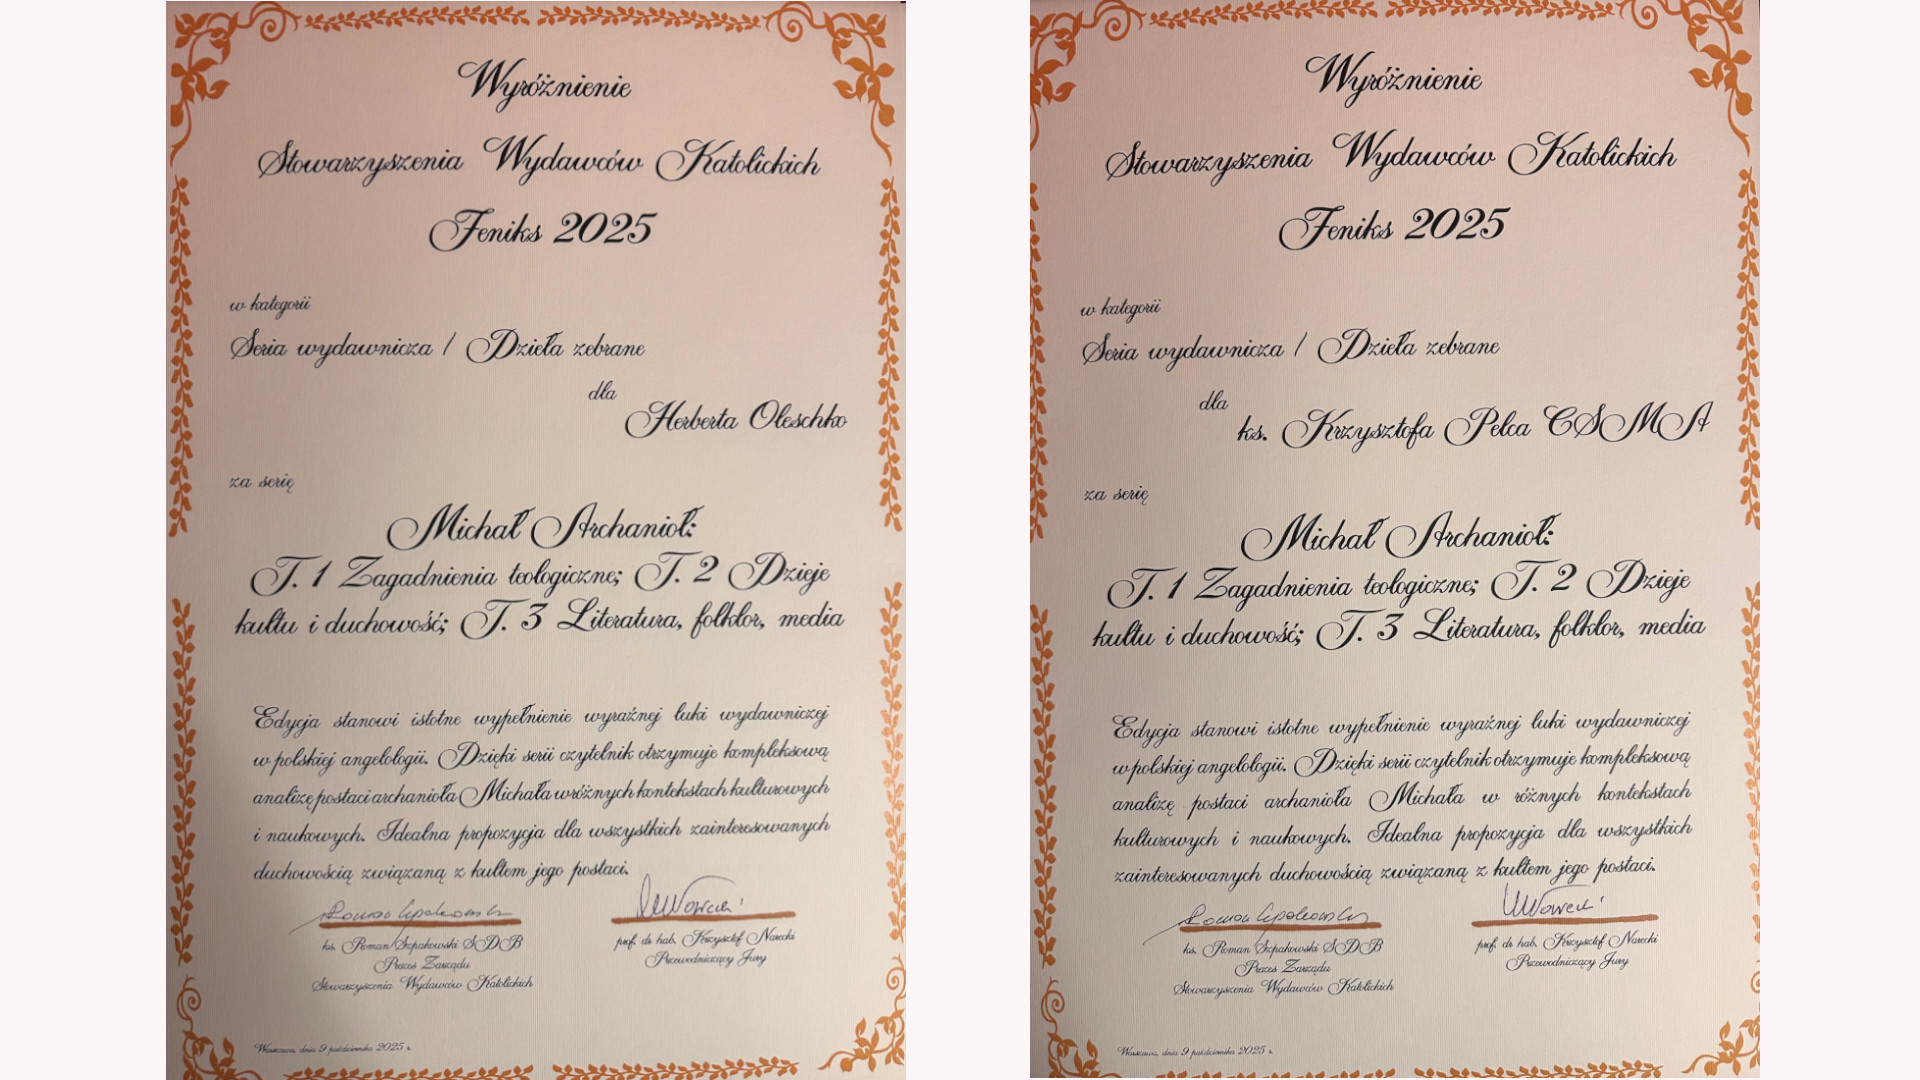 Wyróżnienie
Stowarzyszenia Wydawców Katolickich
Feniks 2025
w kategorii
Seria wydawnicza / Dzieła zebrane
dla
Herberta Oleschko
za serię
Michał Archanioł:
T. 1 Zagadnienia teologiczne; T. 2 Dzieje
kultu i duchowość; T. 3 Literatura, folklor, media
Edycja stanowi istotne wypełnienie wyraźnej luki wydawniczej
w polskiej angelologii. Dzięki serii czytelnik otrzymuje kompleksową
analizę postaci archanioła Michała w różnych kontekstach kulturowych
i naukowych. Idealna propozycja dla wszystkich zainteresowanych
duchowością związaną z kultem jego postaci.
ks. Roman Szpakowski SDB
Prezes Zarządu
Stowarzyszenia Wydawców Katolickich
prof. dr hab. Krzysztof Narecki
Przewodniczący Jury
Warszawa, dnia 9 października 2025 r.
Wyróżnienie
Stowarzyszenia Wydawców Katolickich
Feniks 2025
w kategorii
Seria wydawnicza / Dzieła zebrane
dla
ks. Krzysztofa Pelca CSMA
za serię
Michał Archanioł:
T. 1 Zagadnienia teologiczne; T. 2 Dzieje
kultu i duchowość; T. 3 Literatura, folklor, media
Edycja stanowi istotne wypełnienie wyraźnej luki wydawniczej
w polskiej angelologii. Dzięki serii czytelnik otrzymuje kompleksową
analizę postaci archanioła Michała w różnych kontekstach
kulturowych i naukowych. Idealna propozycja dla wszystkich
zainteresowanych duchowością związaną z kultem jego postaci.
ks. Roman Szpakowski SDB
Prezes Zarządu
Stowarzyszenia Wydawców Katolickich
prof. dr hab. Krzysztof Narecki
Przewodniczący Jury
Warszawa, dnia 9 października 2025 r.